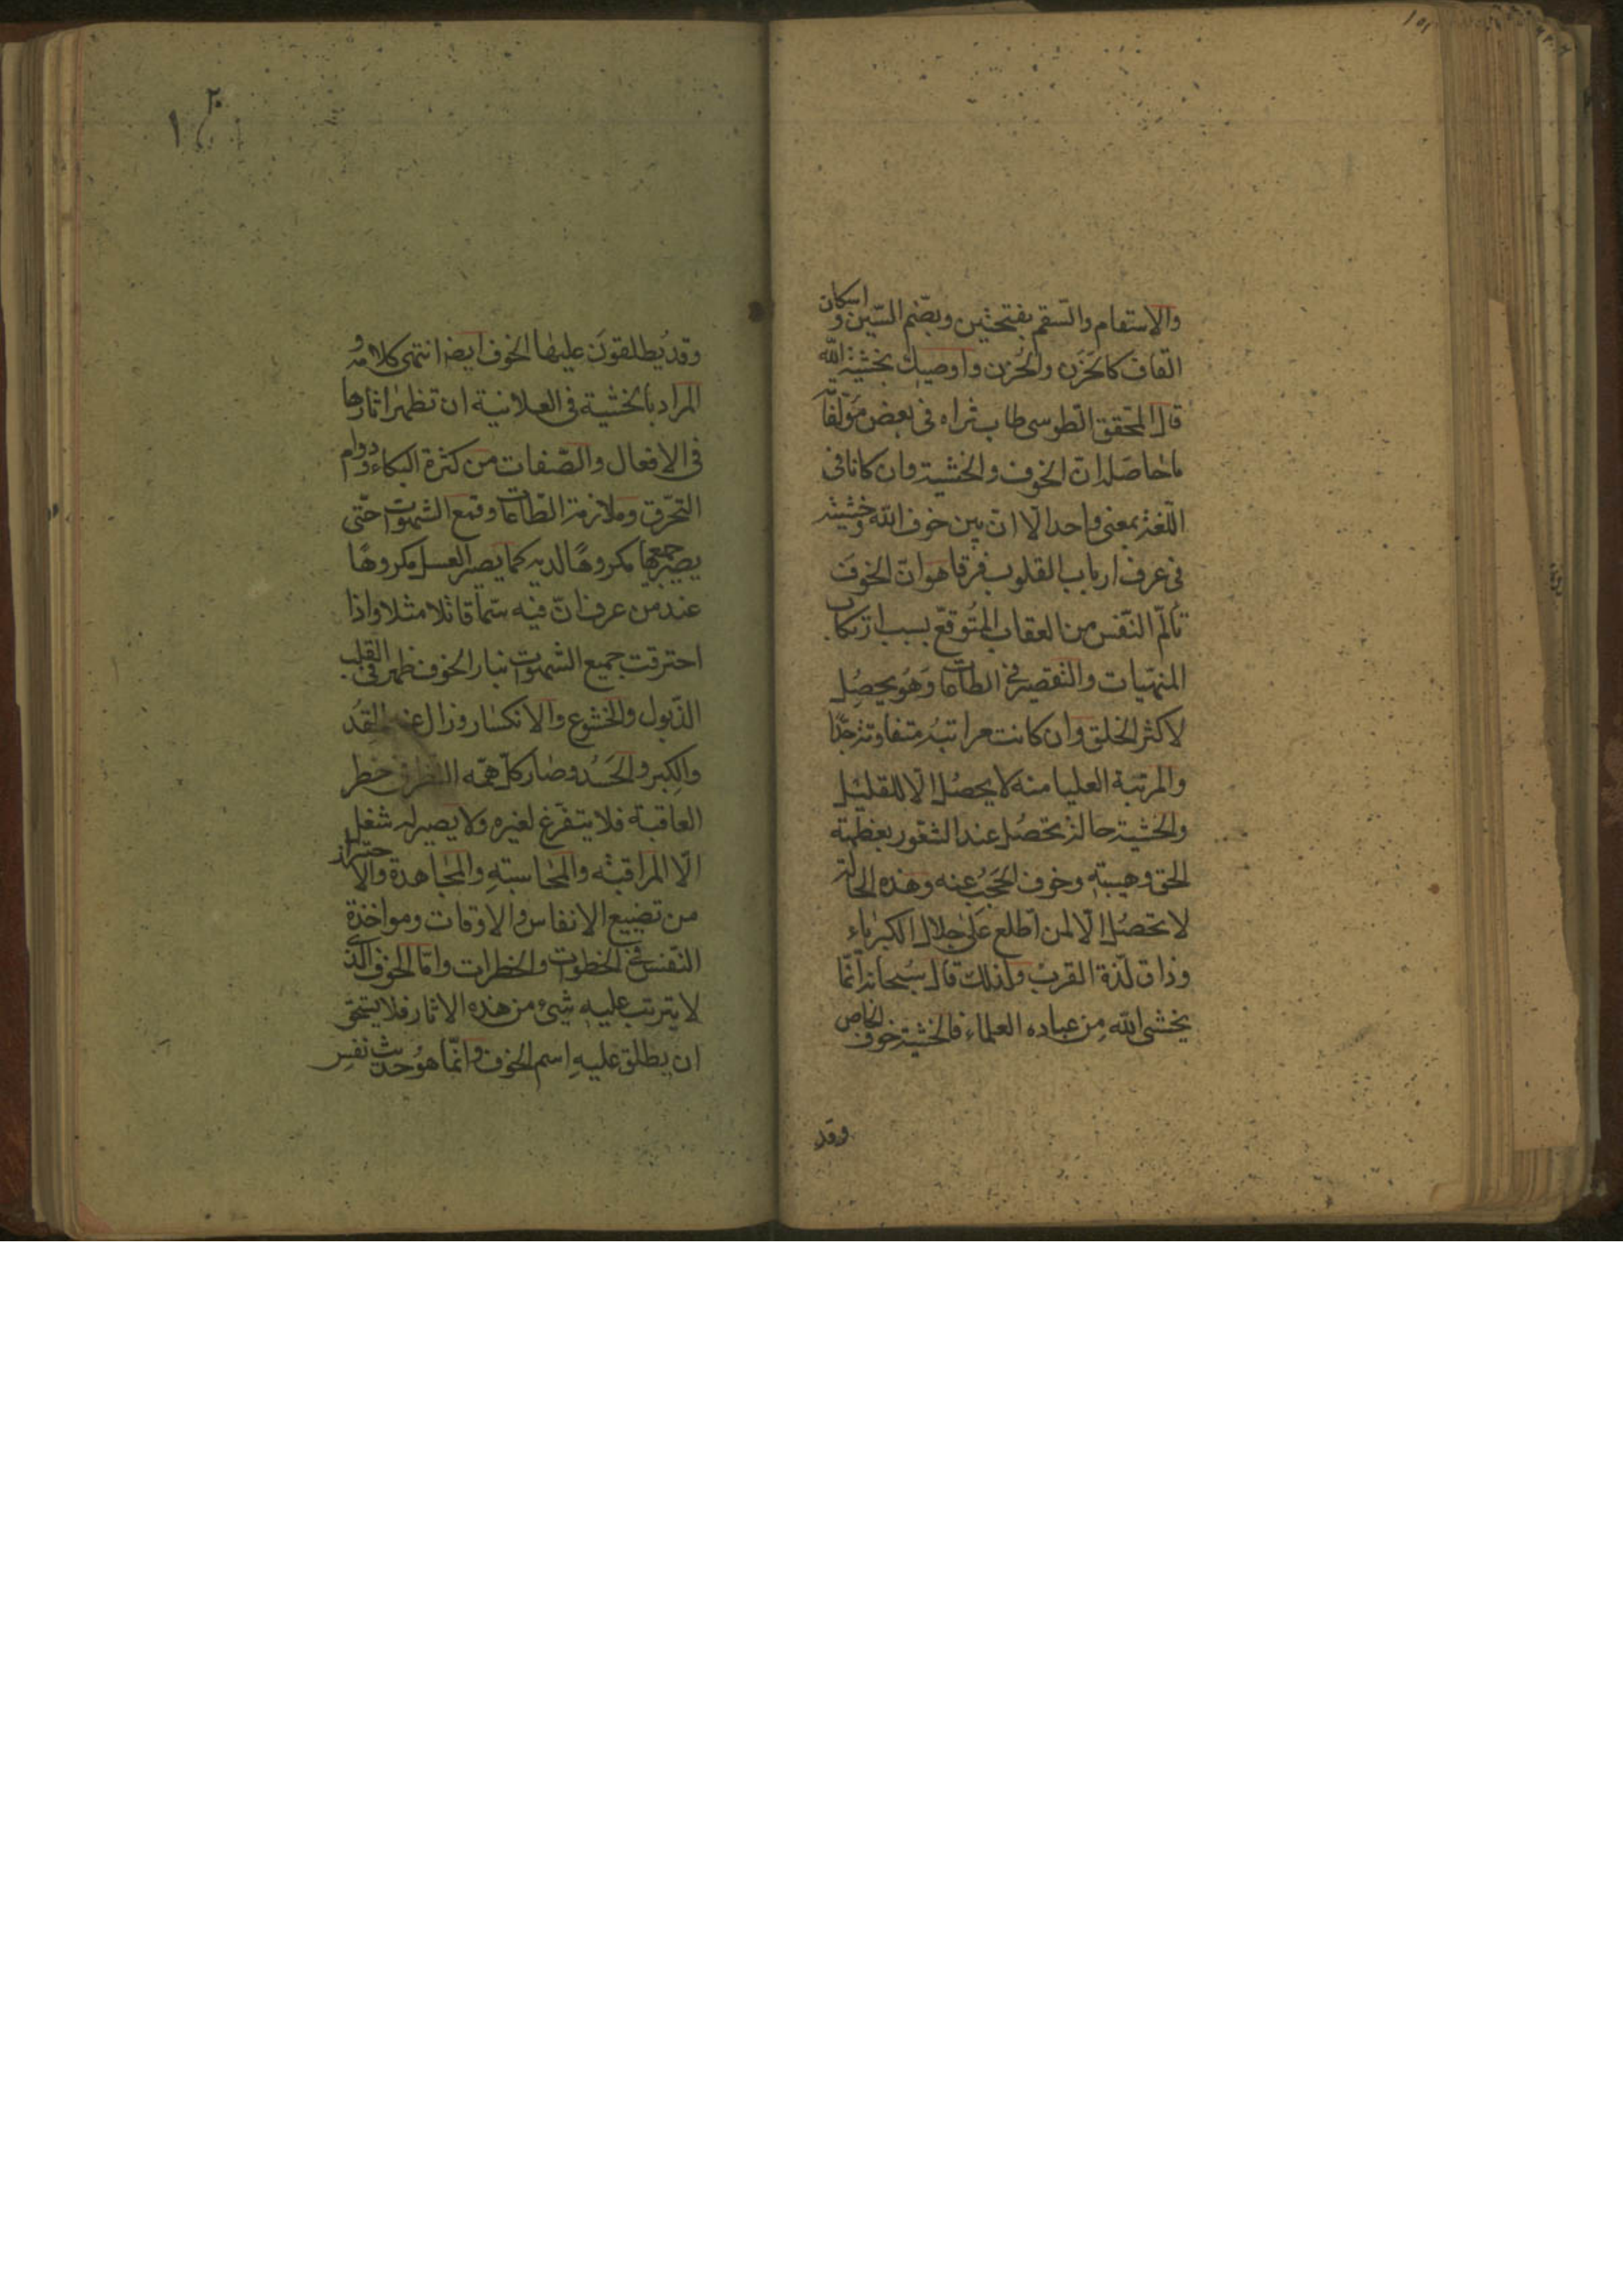 والاسقام والسّقم بفتحتين وبضّم السّين و اسكان
القاف كالحَزَن والحُزن واوصيك بخشية الله
قال المحقق الطوسى طاب ثراه فى بعض مؤلفاته
ما حاصله ان الخوف والخشية وان كانا فى
اللّغة بمعنى واحد الّا ان بين خوف الله وخشيته
فى عرف ارباب القلوب فرقا هو انّ الخوف
تألّم النّفس من العقاب المتوقّع بسبب ارتكاب
المنهيّات والتقصير فى الطّاعات وهو يحصل
لاكثر الخلق وان كانت مراتبه متفاوتة جدّا
والمرتبة العليا منه لا يحصل الّا للقليل
والخشية حالة تحصُل عند الشعور بعظمة
الحق وهيبته وخوف الحجب عنه وهذه الحالة
لا تحصُل الّا لمن اطلع على جلال الكبرياء
وذاق لذّة القرب ولذلك قال سبحانه انّما
يخشى الله من عباده العلماء فالخشية خوف الخاص
وقد
وقد يُطلقونَ عليها الخوف ايضا انتهى كلامه و
المراد بالخشية فى العلانية ان تظهر اثارها
فى الافعال والصّفات من كثرة البكاء ودوام
التحّرق وملازمة الطّاعات وقمع الشهوات حتّى
يصير جميعها مكروهًا لديه كما يصير العسل مكروهًا
عند من عرف انّ فيه سمّا قاتلا مثلا واذا
احترقت جميع الشهوات بنار الخوف ظهر فى القلب
الذّبول والخشوع والانكسار وزال عنه الحقد
والكبر والحَسَد وصار كلّ همّه النظر فى خطر
العاقبة فلا يتفرّغ لغيره ولا يصير له شغل
الّا المراقبة والمحاسبة والمجاهدة والاحتراز
من تضييع الانفاس والاوقات ومواخذة
النّفس فى الخطوات والخطرات وامّا الخوف الذى
لا يترتب عليه شىء من هذه الاثار فلا يستحق
ان يطلق عليه اسم الخوف وانّما هو حديث نفس